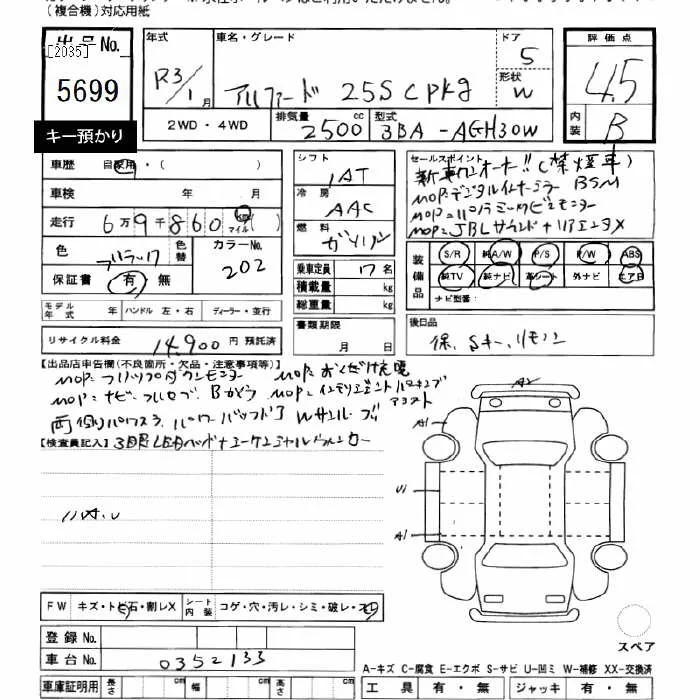 (複合機)対応用紙
出品No.
[2035]
5699
キー預かり
年式 車名・グレード ドア 評価点
R3/1月 アルファード 25S C pkg 5
形状 W 4.5
2WD・4WD 排気量 2500cc 型式 3BA-AGH30W 内装 B
車歴 自家用・( )
シフト IAT
セールスポイント
新車ワンオーナー!!(禁煙車)
車検 年 月
冷房 AAC
MOP=デジタルインナーミラー BSM
MOP=パノラミックビューモニター
走行 6万9千860 km マイル
MOP=JBLサウンド+リアエンタメ
燃料 ガソリン
色 ブラック 色替 カラーNo. 202
装備品 S/R 純A/W P/S P/W ABS
純TV 純ナビ 革シート 外ナビ エアB
ナビ型番:
保証書 有・無
乗車定員 7名
積載量 kg
総重量 kg
モデル年式 年 ハンドル 左・右 ディーラー・並行
書類期限 月 日
後日品
保、Sキー、リモコン
リサイクル料金 14,900円 預託済
【出品店申告欄(不良箇所・欠品・注意事項等)】
MOP=フリップダウンモニター MOP=おくだけ充電
MOP=ナビ フルセグ Bカメラ MOP=インテリジェントパーキングアシスト
両側パワスラ パワーバックドア Wサンルーフ
【検査員記入】 3眼LEDヘッド+シーケンシャルウィンカー
A2
A1
U1
A1
FW キズ・トビ石・割レX シート内装 コゲ・穴・汚レ・シミ・破レ・スレ
登録No.
車台No. 0352133
スペア
A-キズ C-腐食 E-エクボ S-サビ U-凹ミ W-補修 XX-交換済
車庫証明用 長さ cm 幅 cm 高さ cm 工具 有・無 ジャッキ 有・無